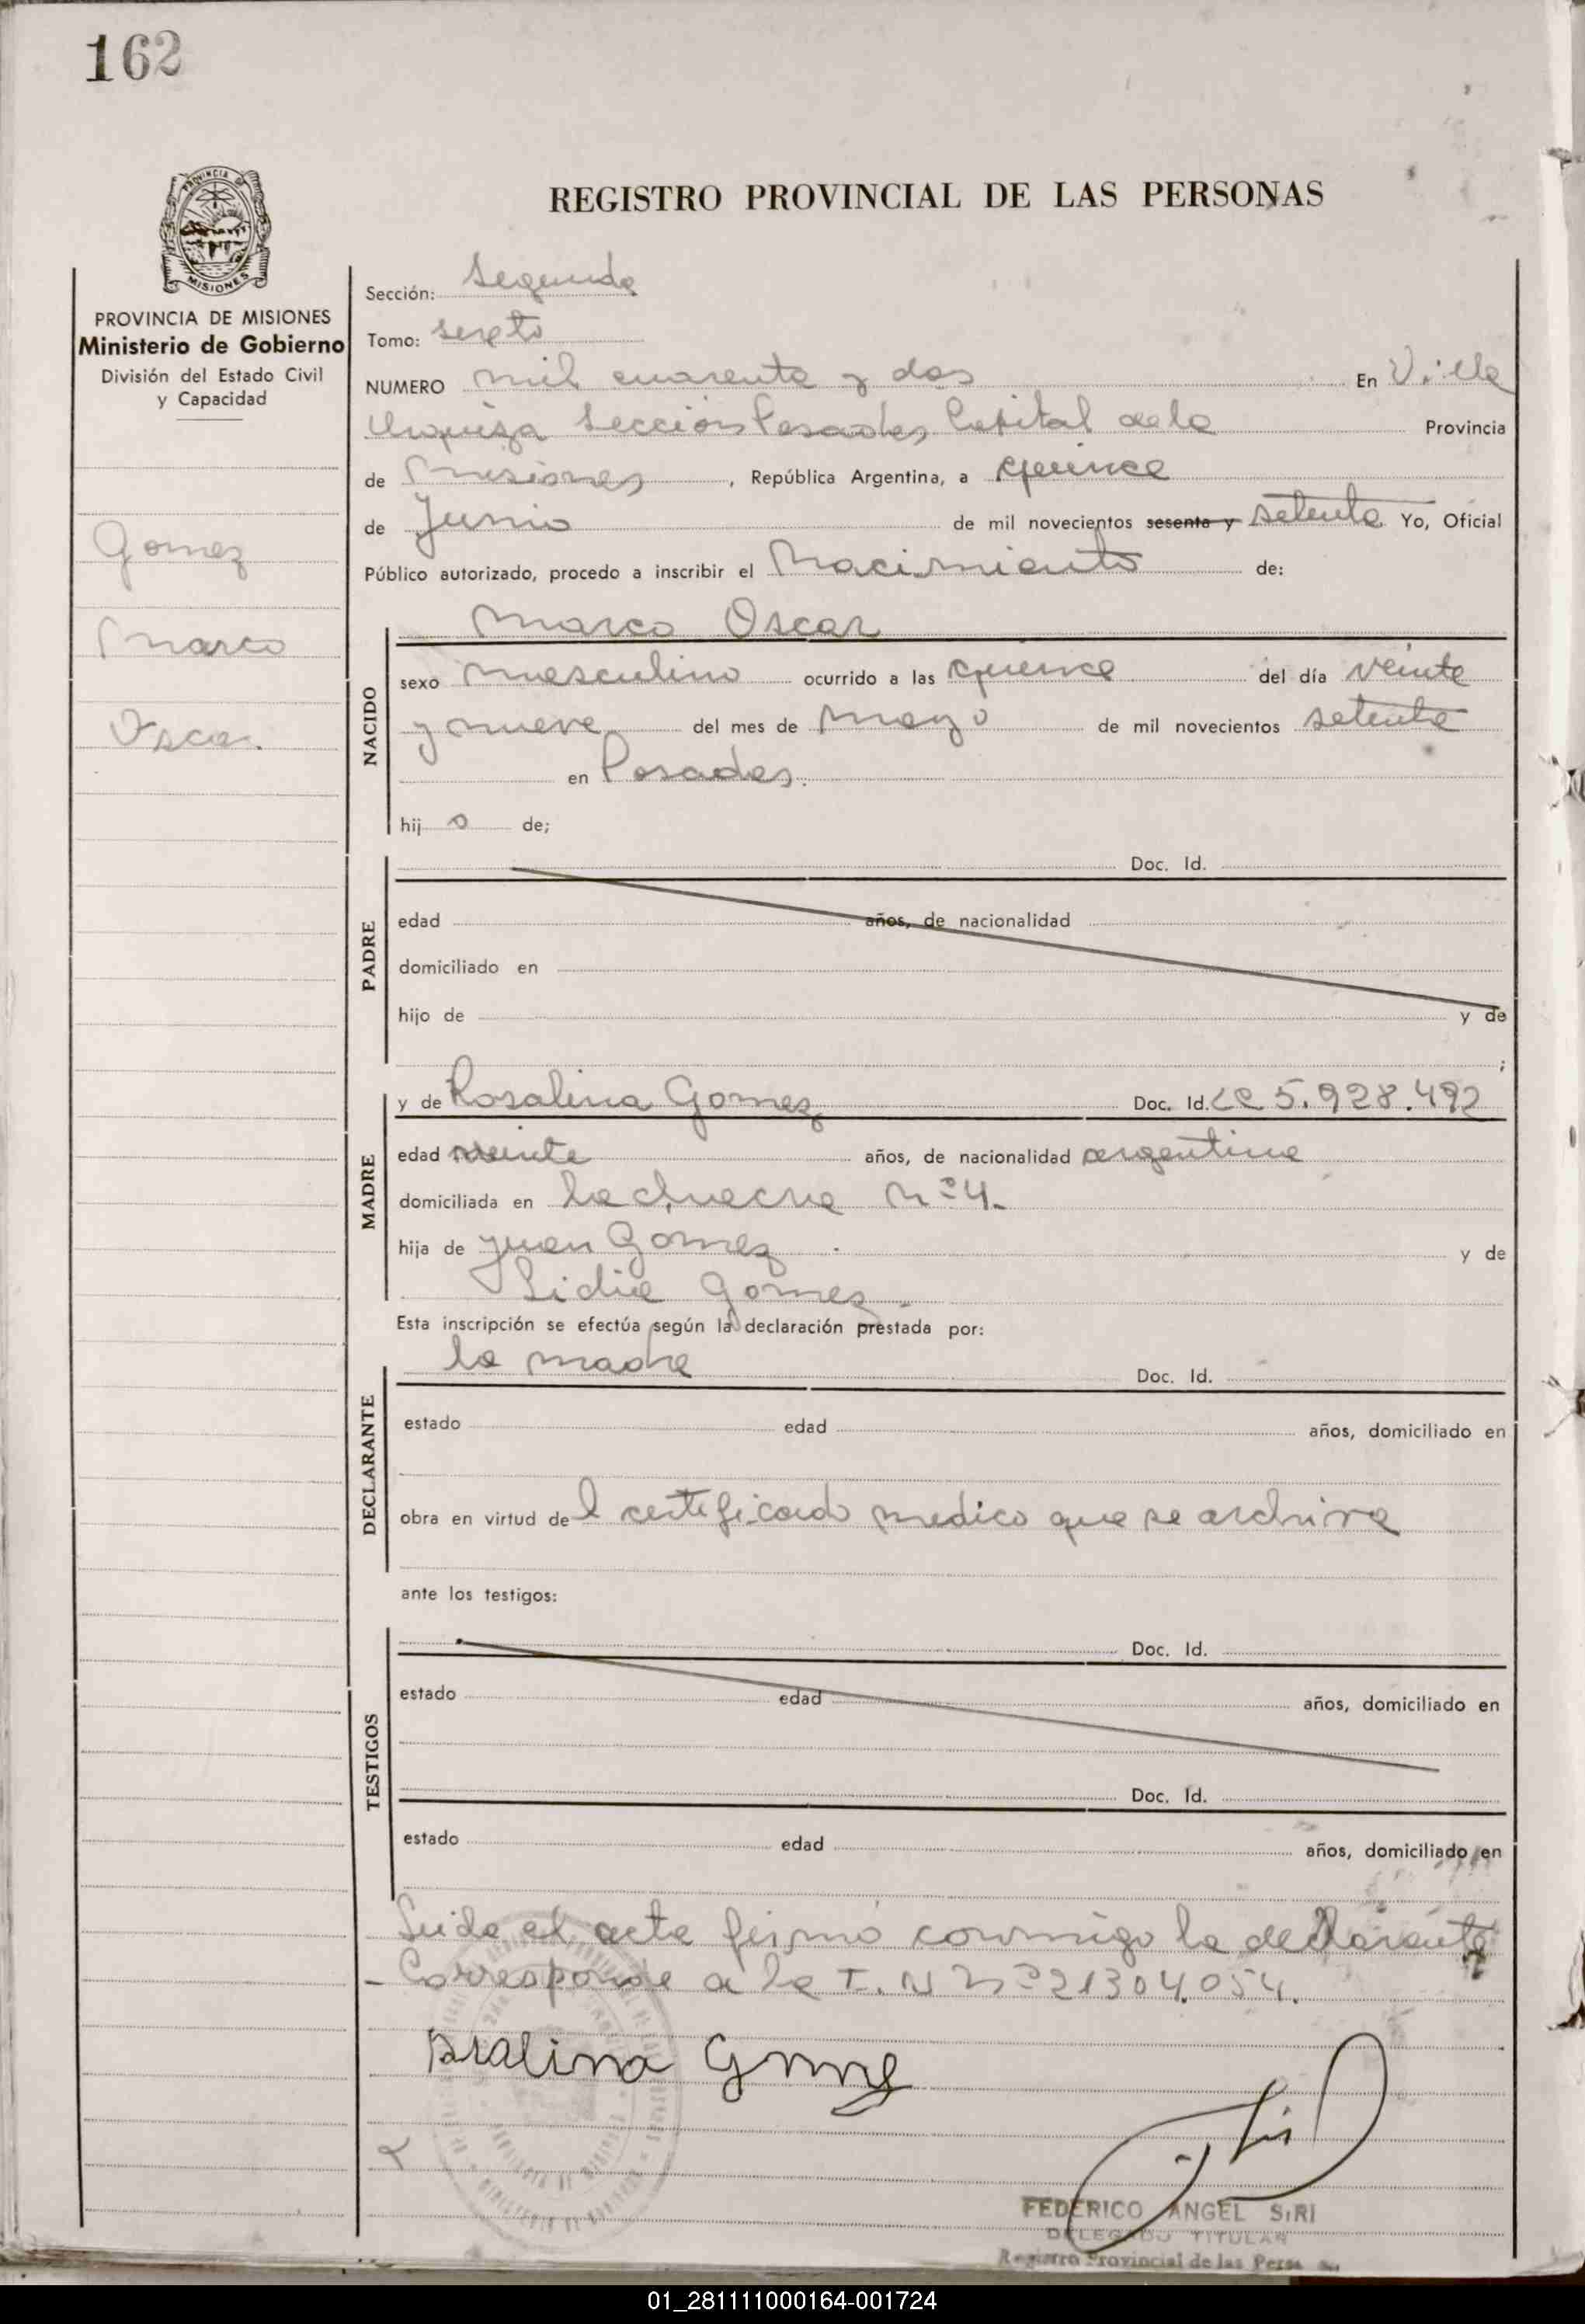 162
PROVINCIA DE
MISIONES
REGISTRO PROVINCIAL DE LAS PERSONAS
PROVINCIA DE MISIONES
Ministerio de Gobierno
División del Estado Civil
y Capacidad
Gomez
Marco
Oscar.
Sección: Segunda
Tomo: sexto
NUMERO mil cuarenta y dos En Villa
Urquiza Sección Posadas, Capital de la Provincia
de Misiones, República Argentina, a quince
de Junio de mil novecientos sesenta y setenta Yo, Oficial
Público autorizado, procedo a inscribir el Nacimiento de:
Marco Oscar
NACIDO
sexo masculino ocurrido a las quince del día veinte
y nueve del mes de mayo de mil novecientos setenta
en Posadas.
hij o de;
PADRE
Doc. Id.
edad años, de nacionalidad
domiciliado en
hijo de y de
;
MADRE
y de Rosalina Gomez Doc. Id. LC 5.928.492
edad veinte años, de nacionalidad argentina
domiciliada en La chacra Nº 4.
hija de Juan Gomez y de
Lidia Gomez.
Esta inscripción se efectúa según la declaración prestada por:
DECLARANTE
la madre Doc. Id.
estado edad años, domiciliado en
obra en virtud del certificado medico que se archiva
ante los testigos:
TESTIGOS
Doc. Id.
estado edad años, domiciliado en
Doc. Id.
estado edad años, domiciliado en
Leida el acta firmó conmigo la declarante
- Corresponde a la I. N Nº 21304.054.
Rosalina Gomez
FEDERICO ANGEL SIRI
DELEGADO TITULAR
Registro Provincial de las Pers
01_281111000164-001724